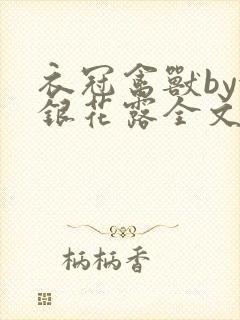 衣冠禽獸by
銀花露全文
柄柄香